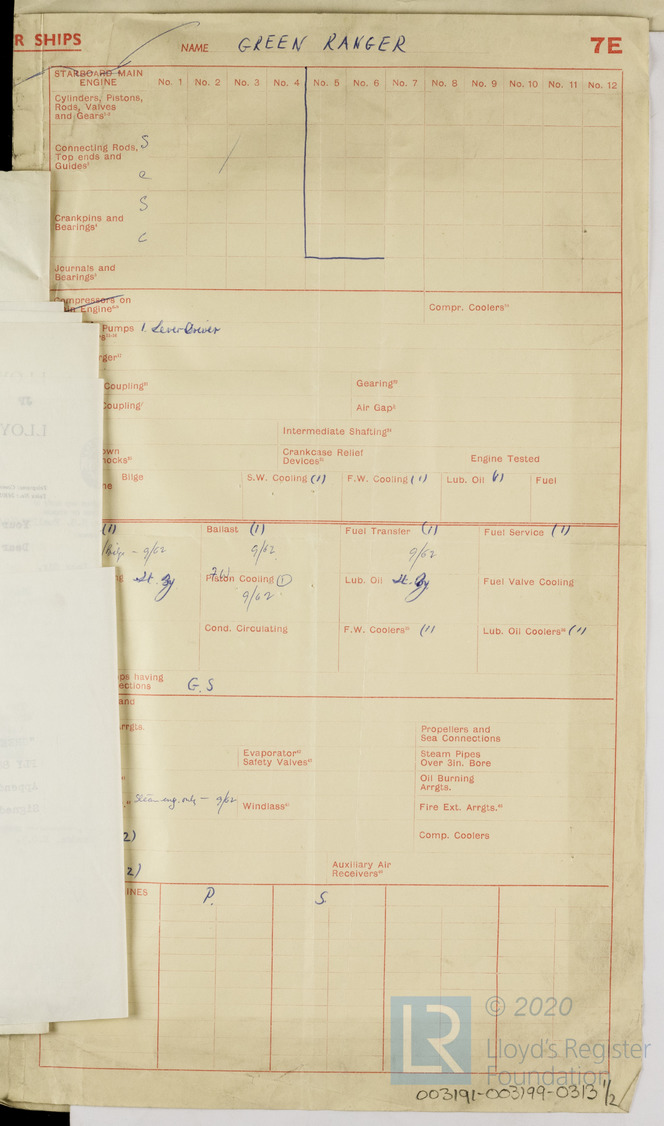 R SHIPS
NAME GREEN RANGER
7E
STARBOARD MAIN ENGINE No. 1 No. 2 No. 3 No. 4 No. 5 No. 6 No. 7 No. 8 No. 9 No. 10 No. 11 No. 12
Cylinders, Pistons,
Rods, Valves
and Gears
Connecting Rods, S
Top ends and
Guides
C
S
Crankpins and
Bearings
C
Journals and
Bearings
Compressors on
Engine
Compr. Coolers
Pumps 1. Lever Driven
Coupling Gearing
Coupling Air Gap
Intermediate Shafting
Crankcase Relief
Devices
Engine Tested
Bilge S.W. Cooling (1) F.W. Cooling (1) Lub. Oil (1) Fuel
(1) Ballast (1) Fuel Transfer (1) Fuel Service (1)
Bilge - 9/62 9/62 9/62
St. By Piston Cooling (1) Lub. Oil St. By Fuel Valve Cooling
9/62
Cond. Circulating F.W. Coolers (1) Lub. Oil Coolers (1)
ps having
ections G.S
and
rrgts.
Propellers and
Sea Connections
Evaporator
Safety Valves
Steam Pipes
Over 3in. Bore
Oil Burning
Arrgts.
Steam eng. only - 9/62 Windlass Fire Ext. Arrgts.
2) Comp. Coolers
2) Auxiliary Air
Receivers
INES P. S.
LR
© 2020
Lloyd's Register
Foundation
003191-003199-0313 1/2